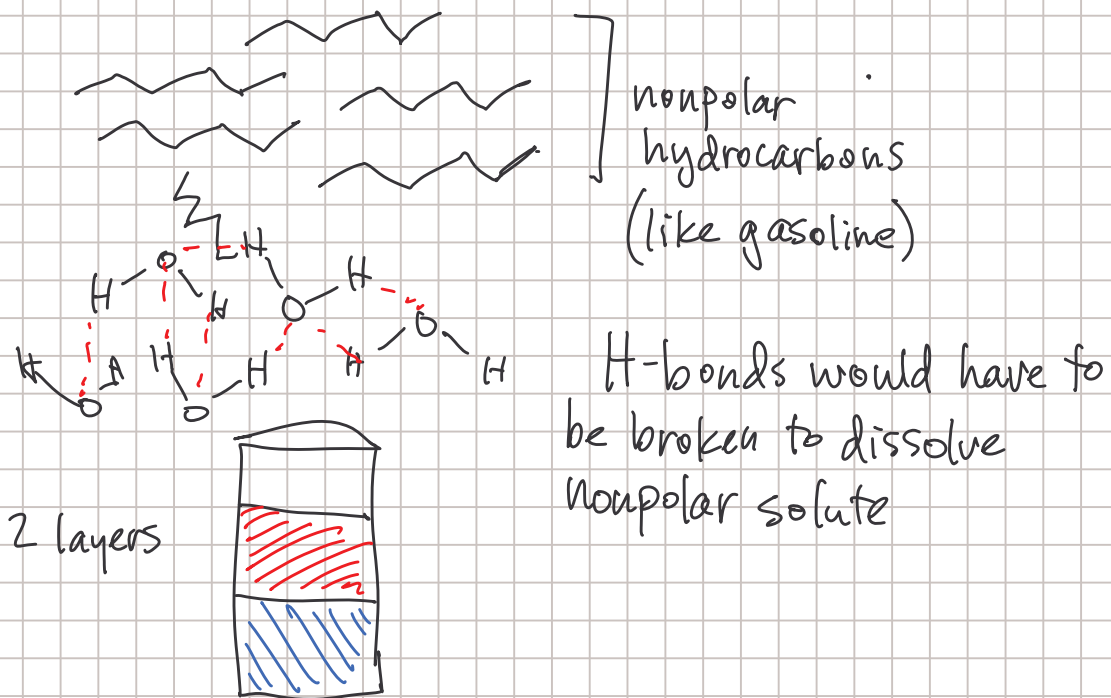 nonpolar
hydrocarbons
(like gasoline)
H O H H H
H O O
H H H H H
O O
H-bonds would have to
be broken to dissolve
nonpolar solute
2 layers